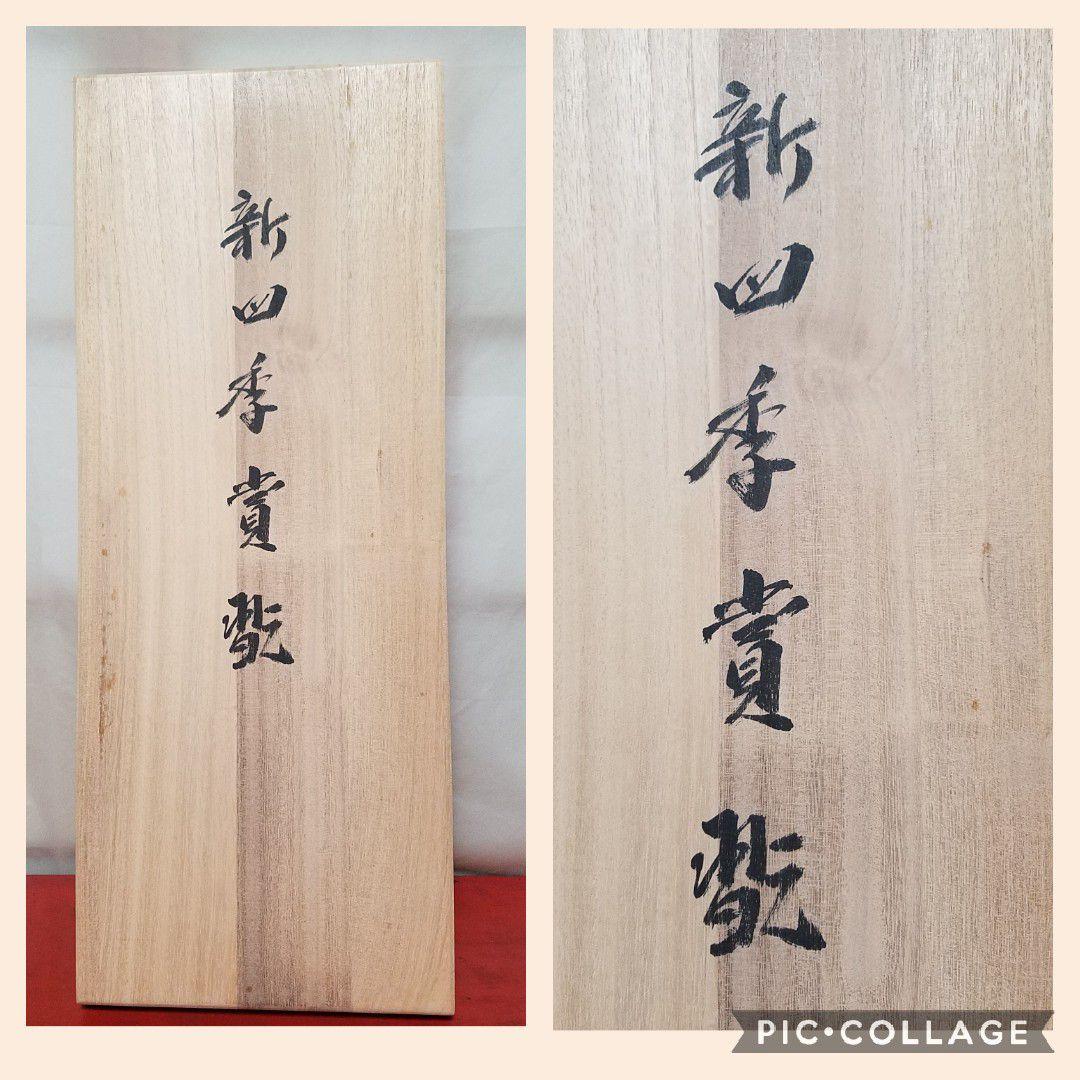 新四季賞翫
新四季賞翫
PIC•COLLAGE